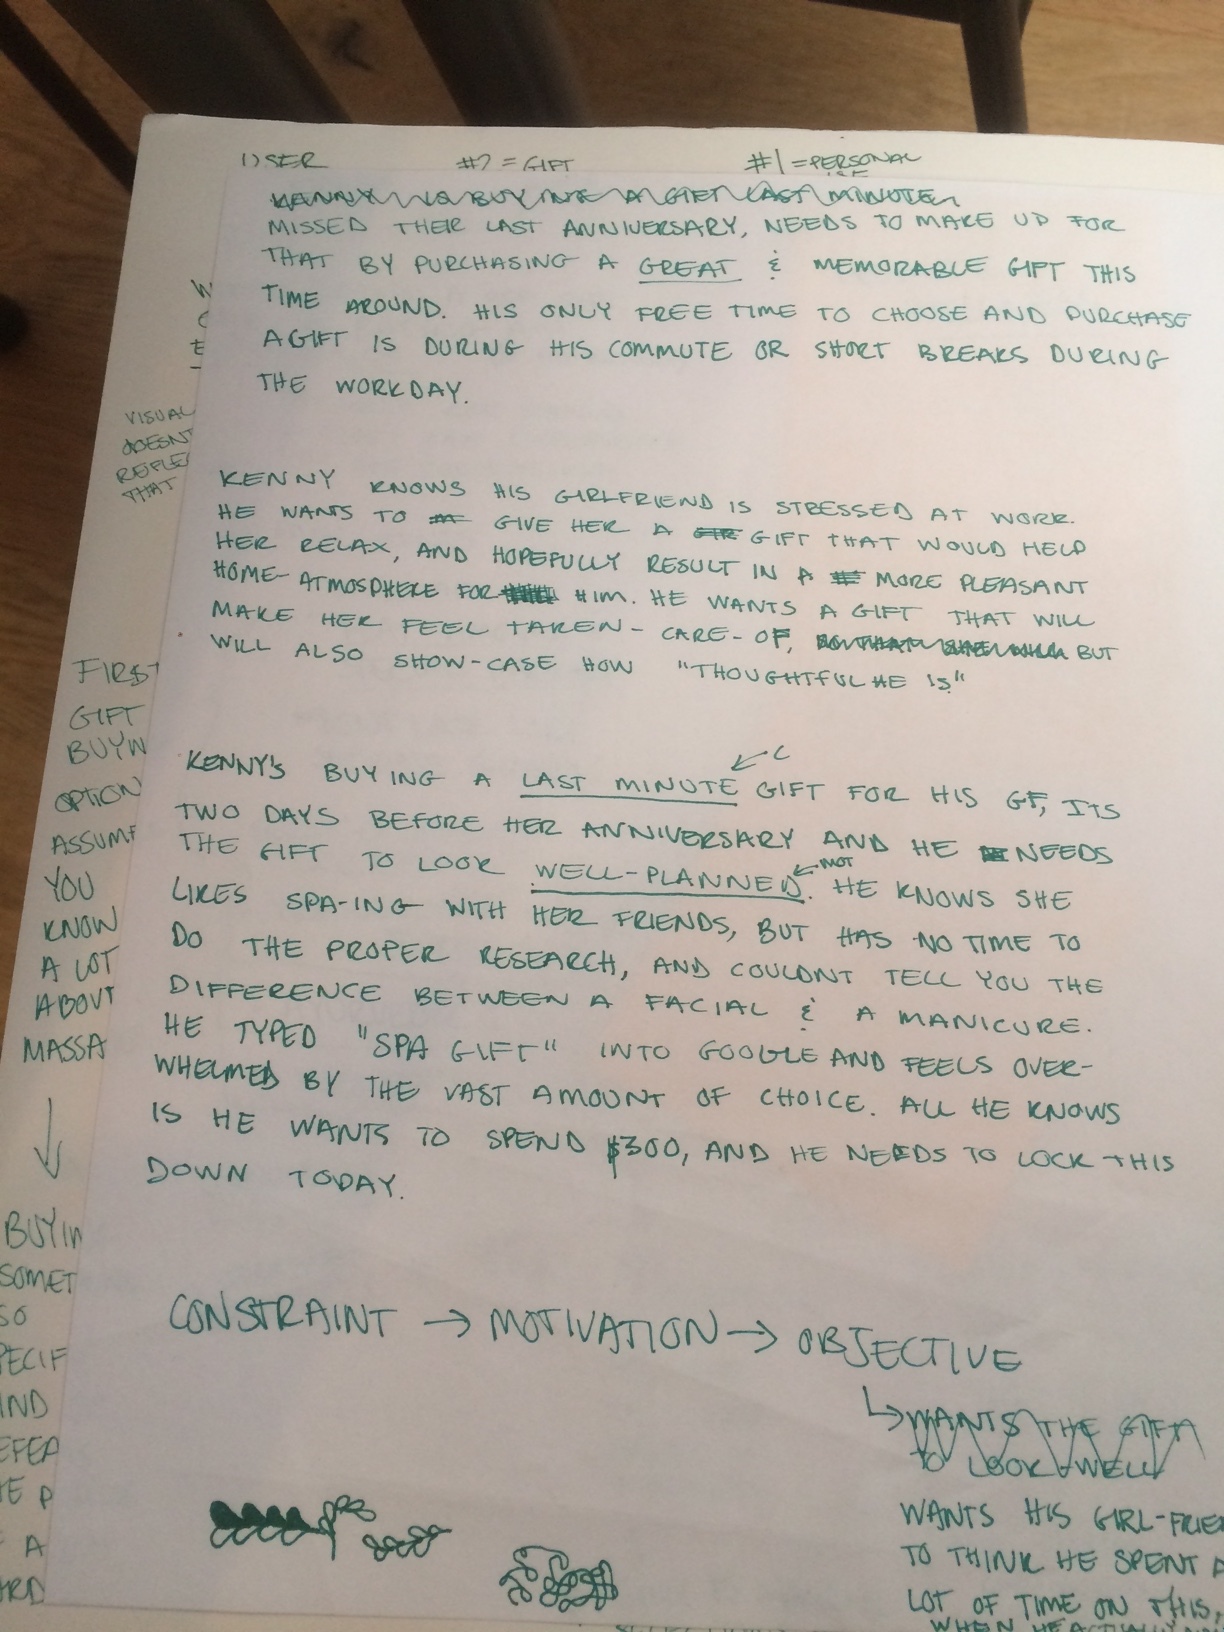 USER #2 = GIFT #1 = PERSONAL
KENNY IS BUYING A GIFT LAST MINUTE
MISSED THEIR LAST ANNIVERSARY, NEEDS TO MAKE UP FOR
THAT BY PURCHASING A GREAT & MEMORABLE GIFT THIS
TIME AROUND. HIS ONLY FREE TIME TO CHOOSE AND PURCHASE
A GIFT IS DURING HIS COMMUTE OR SHORT BREAKS DURING
THE WORKDAY.
VISUAL
DOESNT
REFLE
THAT
KENNY KNOWS HIS GIRLFRIEND IS STRESSED AT WORK.
HE WANTS TO GIVE HER A GIFT THAT WOULD HELP
HER RELAX, AND HOPEFULLY RESULT IN A MORE PLEASANT
HOME-ATMOSPHERE FOR HIM. HE WANTS A GIFT THAT WILL
MAKE HER FEEL TAKEN-CARE-OF, SO THAT SHE WILL BUT
WILL ALSO SHOW-CASE HOW "THOUGHTFUL HE IS"
FIRST
GIFT
BUYIN
OPTION
ASSUME
YOU
KNOW
A LOT
ABOUT
MASSA
KENNY'S BUYING A LAST MINUTE GIFT FOR HIS GF, ITS
TWO DAYS BEFORE HER ANNIVERSARY AND HE NEEDS
THE GIFT TO LOOK WELL-PLANNED. HE KNOWS SHE
MOT
LIKES SPA-ING WITH HER FRIENDS, BUT HAS NO TIME TO
DO THE PROPER RESEARCH, AND COULDNT TELL YOU THE
DIFFERENCE BETWEEN A FACIAL & A MANICURE.
HE TYPED "SPA GIFT" INTO GOOGLE AND FEELS OVER-
WHELMED BY THE VAST AMOUNT OF CHOICE. ALL HE KNOWS
IS HE WANTS TO SPEND $300, AND HE NEEDS TO LOCK THIS
DOWN TODAY.
BUYIN
SOMET
SO
PECIF
IND
EFEA
HE P
A
ARD
CONSTRAINT → MOTIVATION → OBJECTIVE
↳ WANTS THE GIFT
TO LOOK WELL
WANTS HIS GIRL-FRIE
TO THINK HE SPENT A
LOT OF TIME ON THIS,
WHEN HE ACTUALLY